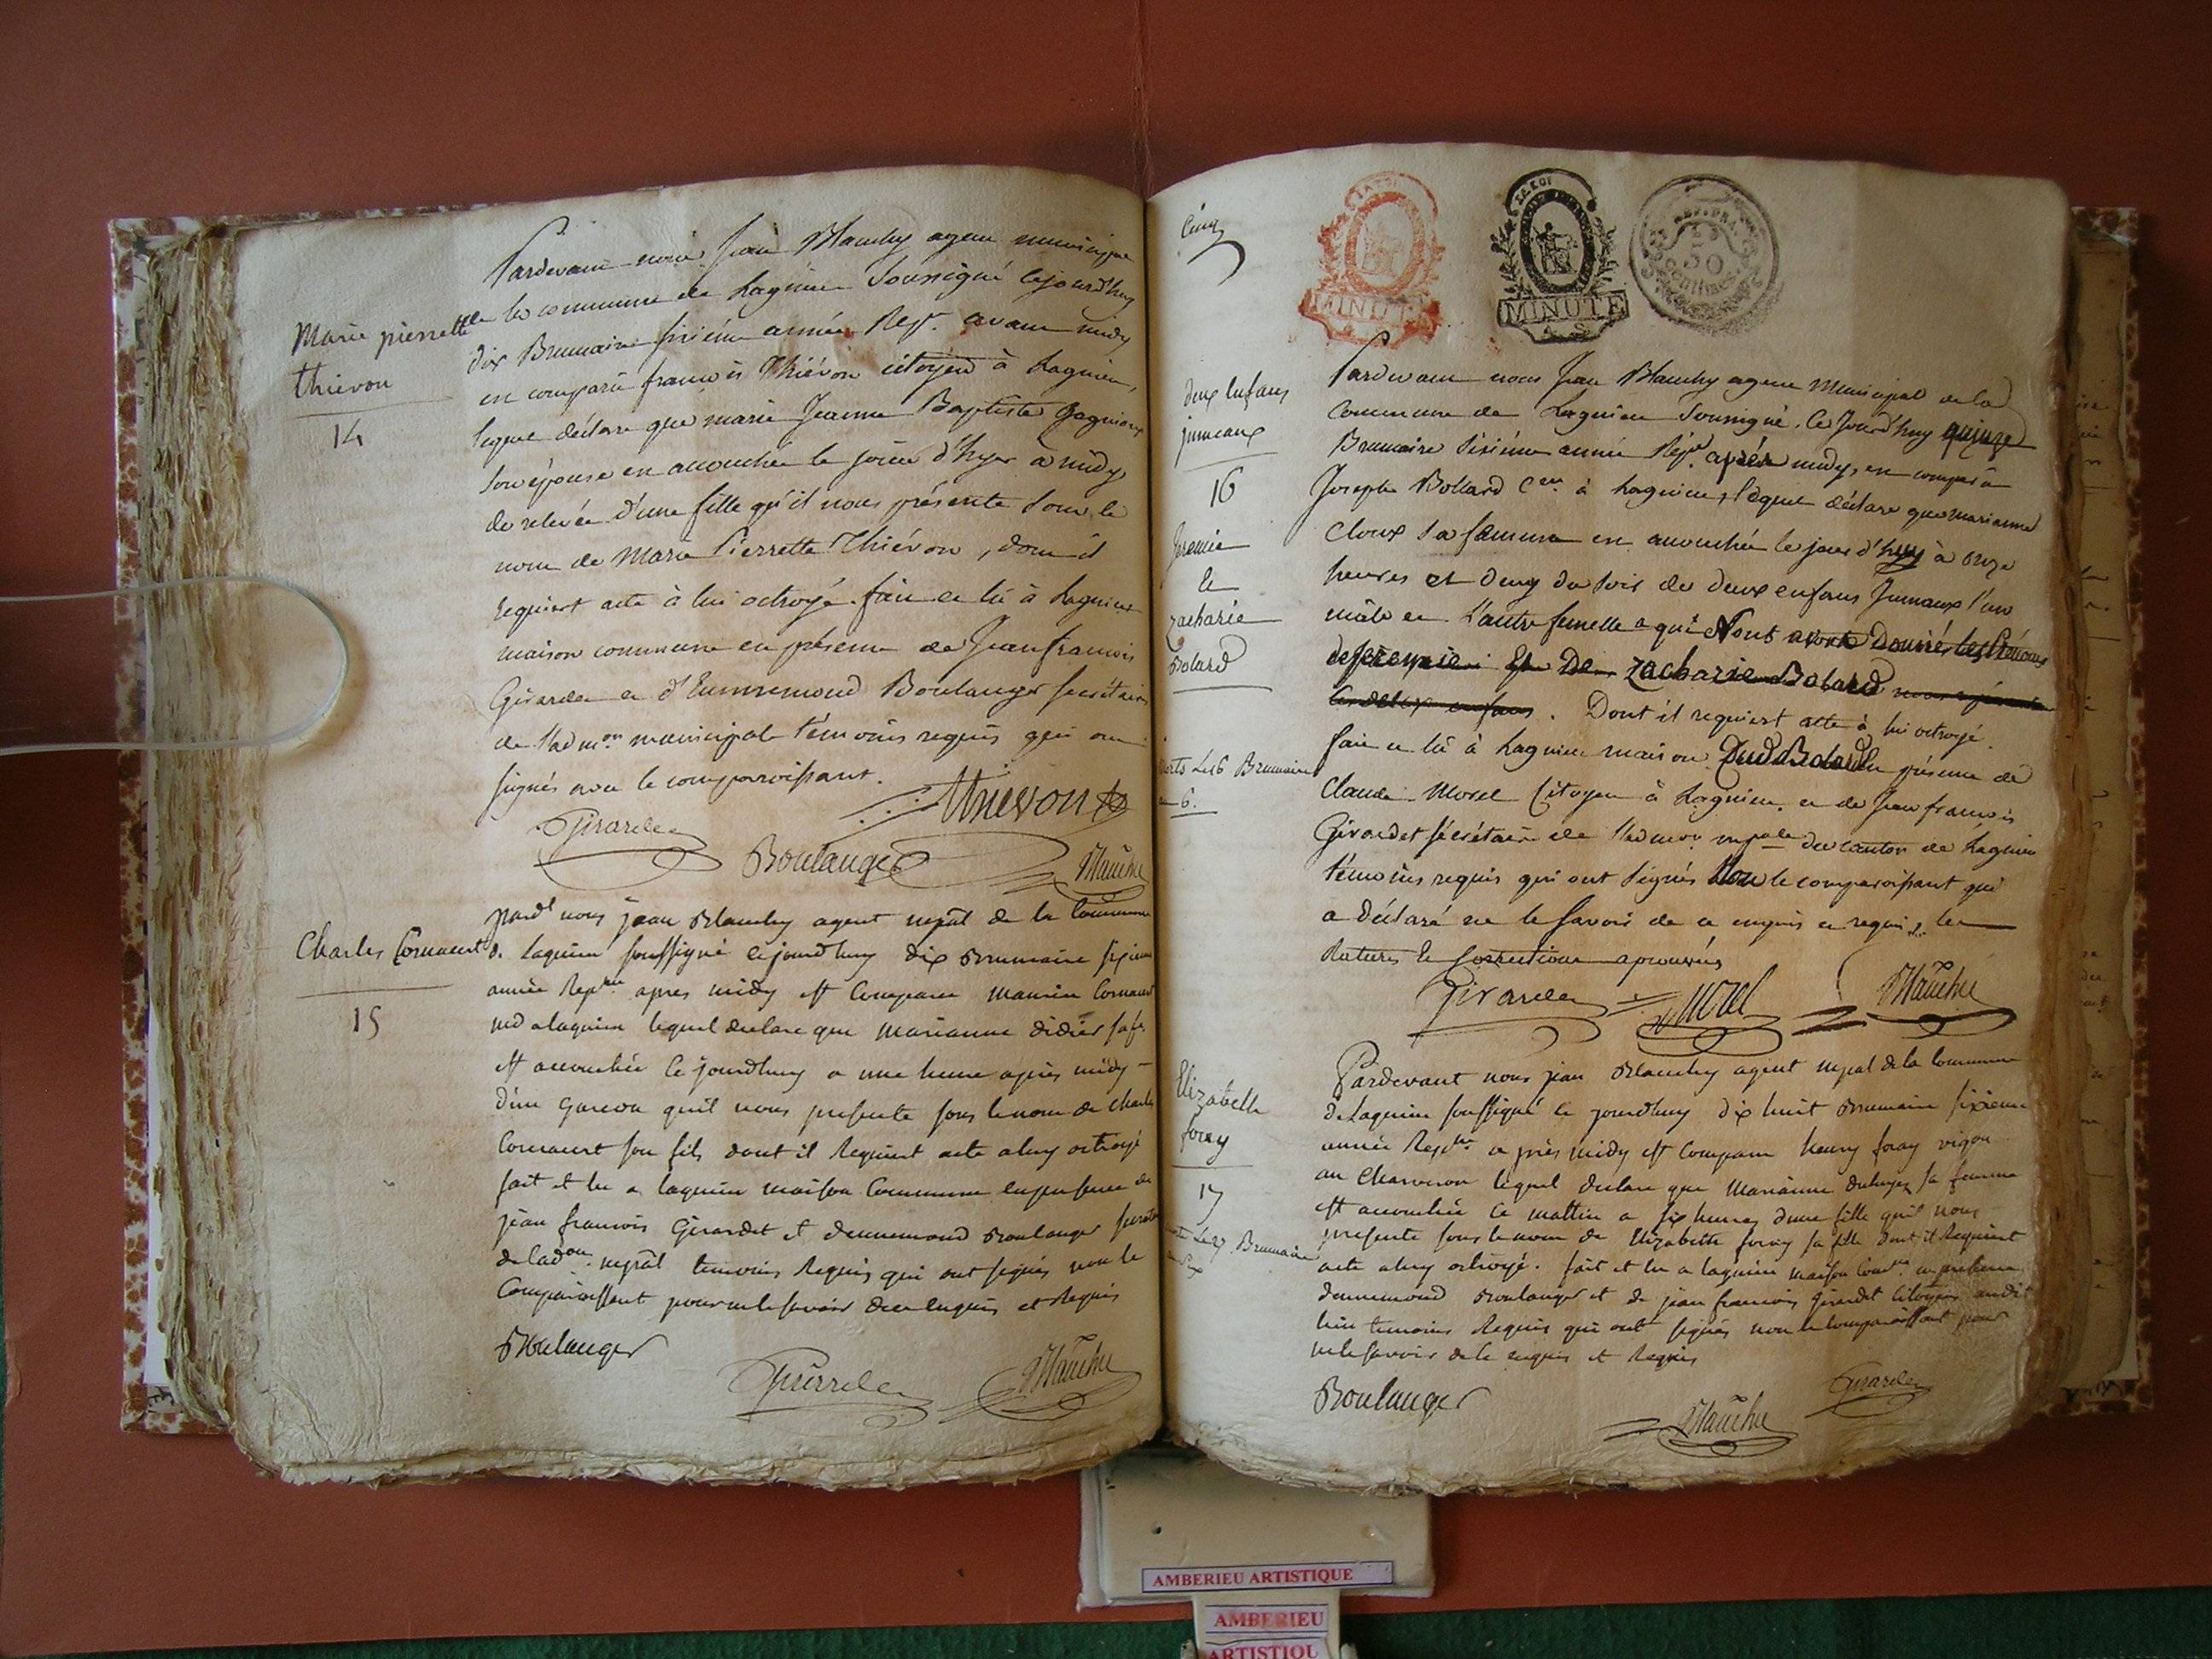 Marie pierrette
thievon
14
Pardevant nous Jean Blanchy agent municipal
de la commune de Lagnieu Soussigné cejourd'huy
dix Brumaire sixiéme année Rep.e avant midy
en comparu francois Thiévon citoyen à Lagnieu,
lequel déclare que marie Jeanne Baptiste
son épouse en accouchée le jour d'hyer à midy
de relevée d'une fille qu'il nous présente sous le
nom de Marie Pierrette Thiévon, dont il
requiert acte à lui octroyé. fait et lu à Lagnieu
maison commune en présence de Jean francois
Girardet et d'Ennemond Boulanger secrétaire
de l'adm.on municipale témoins requis qui ont
signés avec le comparoissant.
Thievon
Girardet
Boulanger
Blanchy
Charles Cornaent
15
pard.t nous jean Blanchy agent mpal de la Commune
de Lagnieu soussigné cejourdhuy dix Brumaire sixieme
année Rep.ne apres midy est Comparu
a lagnieu lequel declare que marianne didier sa fe
est accouchée ce jourdhuy a une heure après midy
d'un garcon quil nous presente sous le nom de Charles
son fils dont il Requiert acte a luy octroyé
fait et lu a lagnieu maison Commune en presence de
jean francois Girardet et dennemond Boulanger
de lad.on mpal temoins Requis qui ont signés non le
Comparoissant pour ne le savoir de ce enquis et Requis
Boulanger
Girardet
Blanchy
Cinq
MINUTE
MINUTE
A.S
50
Centimes
deux Enfans
jumeaux
16
Jeremie
Et
zacharie
Bolard
morts Le 16 Brumaire
an 6.
Pardevant nous Jean Blanchy agent Municipal de la
Commune de Lagnieu Soussigné. Ce Jourd'huy quinze
Brumaire Sixiéme année Rép.e après midy, en comparu
Joseph Bollard C.en à Lagnieu, lequel déclare que marianne
Cloux sa femme en accouchée le jour d'huy à onze
heures et demy du soir de deux enfans Jumeaux l'un
mâle et l'autre femelle a qui Nous avons Donnés les Prénoms
de Jeremie Et De Zacharie Bolard nous
les deux enfans. Dont il requiert acte à lui octroyé.
fait et lu à Lagnieu maison Dud Bolard En présence de
Claude Morel Citoyen à Lagnieu et de Jean francois
Girardet sécrétaire de l'admon mpale du canton de Lagnieu
témoins requis qui ont Signés Non le comparoissant qui
a Déclaré ne le Savoir de ce enquis et requis, les
Ratures et Corrections aprouvées
Girardet
Morel
Blanchy
Elizabette
foray
17
morte Le 27 Brumaire
an six
Pardevant nous jean Blanchy agent mpal de la Commune
de Lagnieu soussigné ce jourdhuy dix huit Brumaire sixieme
année Rep.ne a près midy est Comparu henry foray vigon
au Charveron lequel declare que Marianne sa femme
est accouchée ce mattin a six heures dune fille quil nous
presente sous le nom de Elizabette foray sa fille dont il Requiert
acte a luy octroyé. fait et lu a lagnieu maison Com.ne en presence
dennemond Boulanger et de jean francois Girardet Citoyens audit
lieu temoins Requis qui ont signés non le Comparoissant pour
ne le savoir de ce enquis et Requis
Boulanger
Blanchy
Girardet
AMBERIEU ARTISTIQUE
AMBERIEU
ARTISTIQU